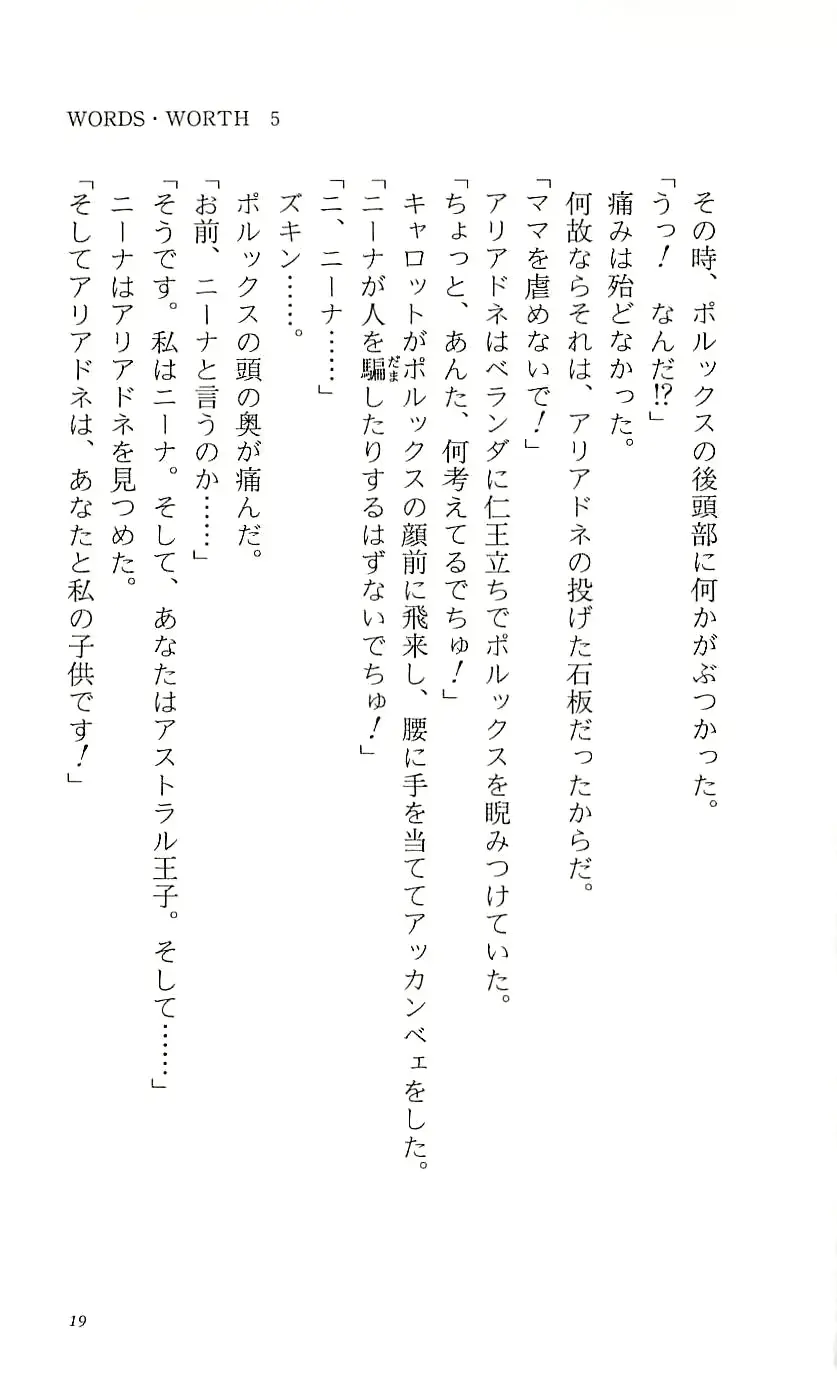 WORDS・WORTH 5
その時、ポルックスの後頭部に何かがぶつかった。
「うっ! なんだ!?」
痛みは殆どなかった。
何故ならそれは、アリアドネの投げた石板だったからだ。
「ママを虐めないで!」
アリアドネはベランダに仁王立ちでポルックスを睨みつけていた。
「ちょっと、あんた、何考えてるでちゅ!」
キャロットがポルックスの顔前に飛来し、腰に手を当ててアッカンベェをした。
「ニーナが人を騙だましたりするはずないでちゅ!」
「ニ、ニーナ……」
ズキン……。
ポルックスの頭の奥が痛んだ。
「お前、ニーナと言うのか……」
「そうです。私はニーナ。そして、あなたはアストラル王子。そして……」
ニーナはアリアドネを見つめた。
「そしてアリアドネは、あなたと私の子供です!」
19